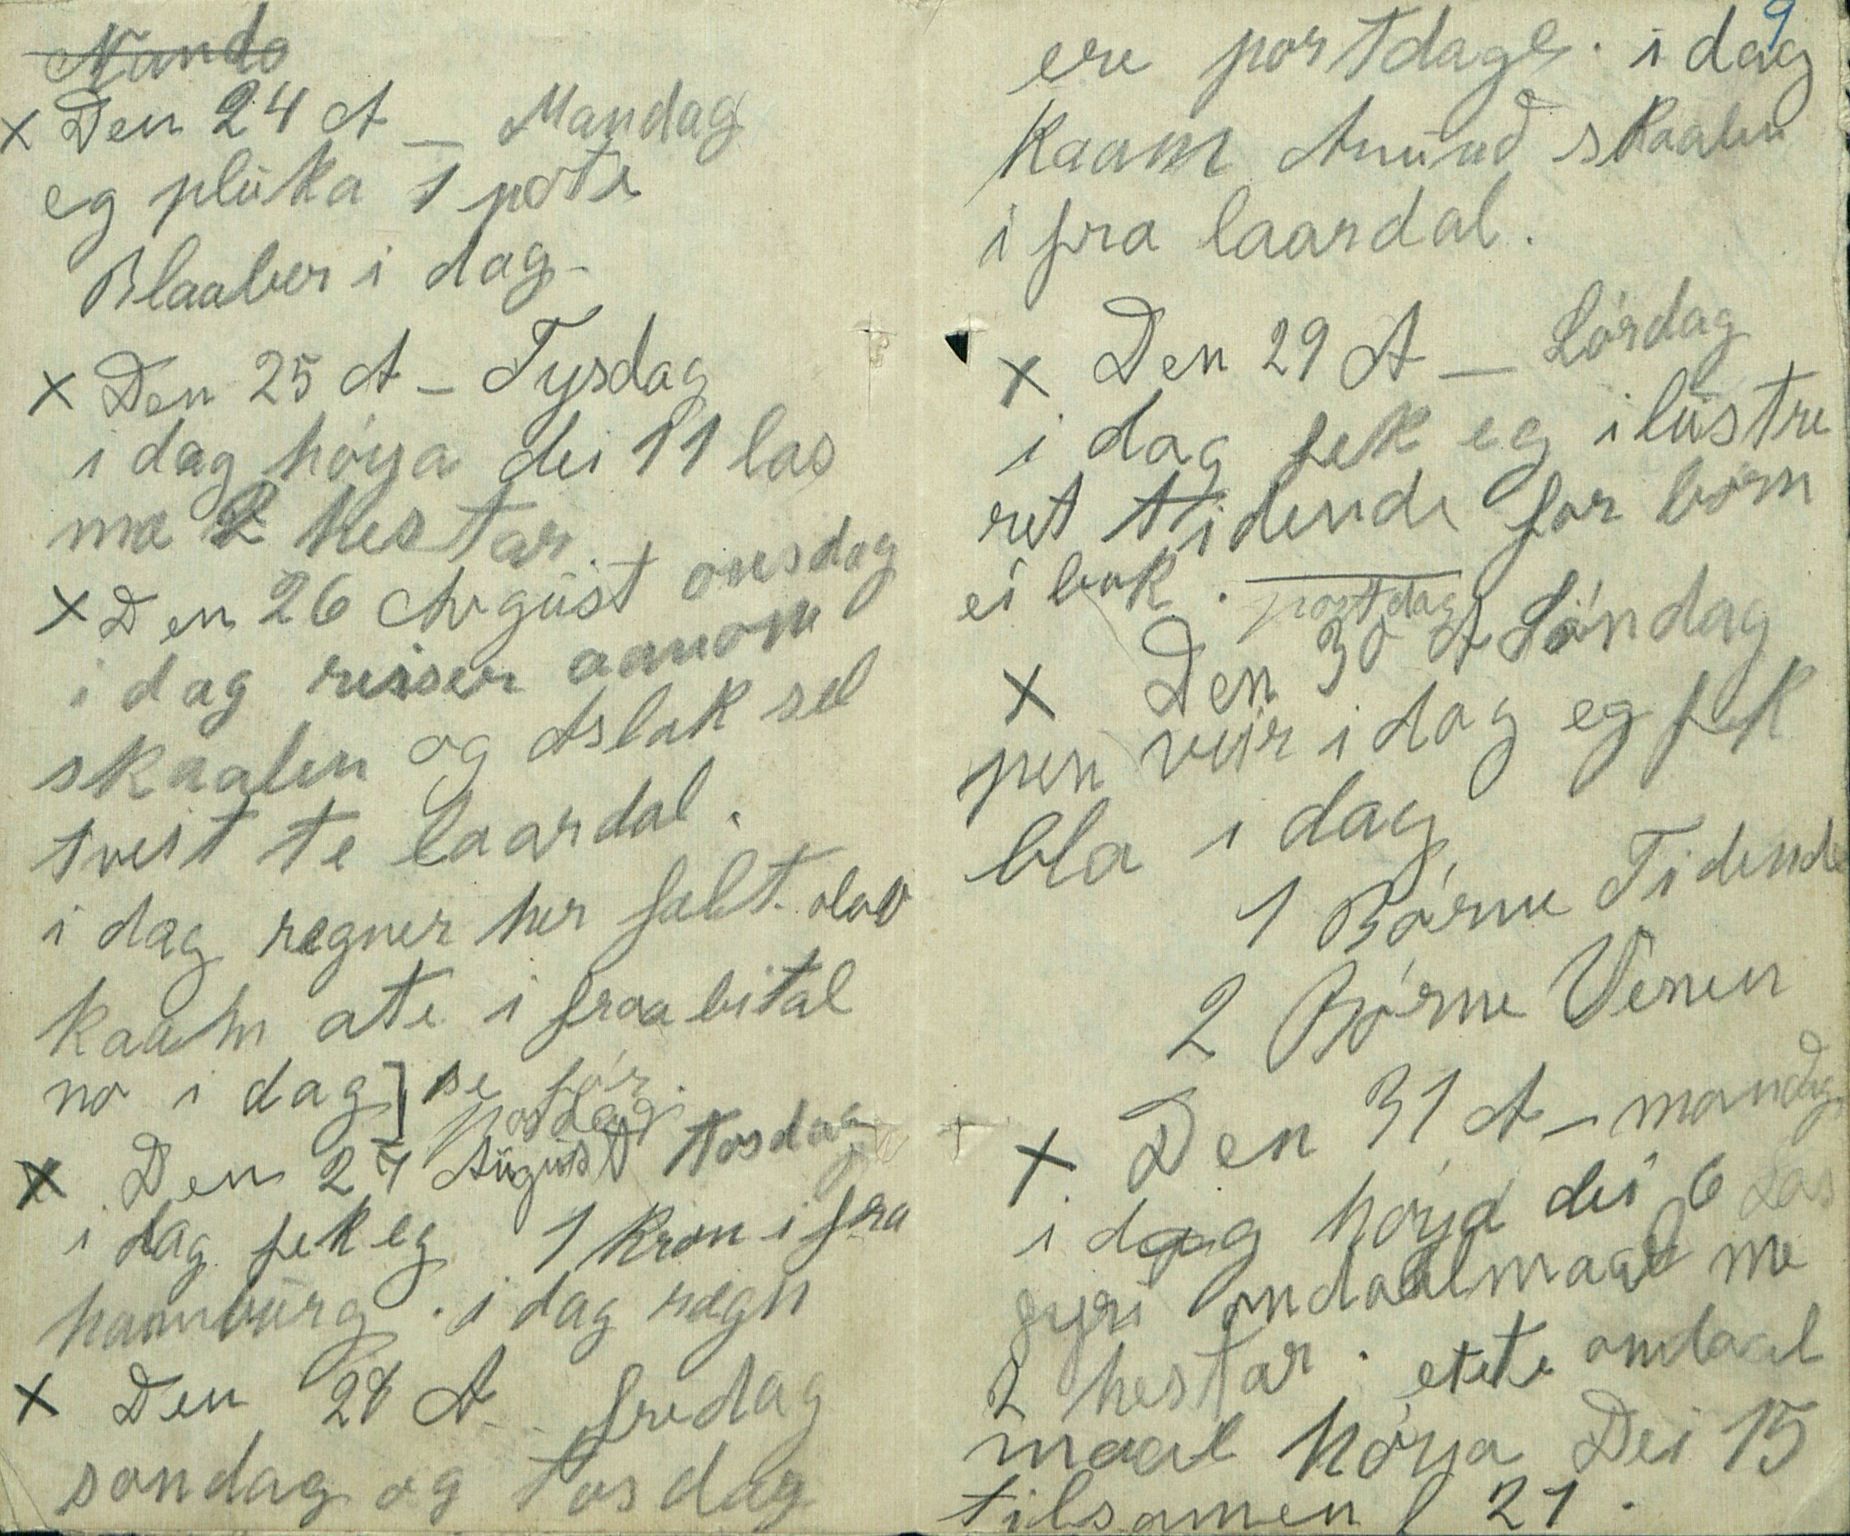 Nando
x Den 24 A _ Mandag
eg plüka 1 pote
Blaaber i dag-
x Den 25 A - Tysdag
i dag höya dei 11 las
mæ 2 hestar.
x Den 26 Avgüst onsdag
i dag reiser aanom
skaalen og Aslak sel
tveit te laardal.
i dag regner her falt. olav
kaam ate i fraa bital
no i dag] se för.
postdag.
x Den 27 Aügust tosdag
i dag fek eg 1 kron i fra
hambürg. i dag rægn
x Den 28 A - fredag
sondag og tosdag
9
ere postdage. i dag
kaam Amünd skaalen
i fra laardal.
x Den 29 A _ Lördag
i dag fek eg ilüstre
ret tidende for börn
ei bok.
postdag
x Den 30 A Söndag
pen veir i dag eg fek
bla i dag
1 Börne Tidende
2 Börne Venen
x Den 31 A - mandag
i dag höya dei 6 Las
fyri ondaalmaal me
2 hestar. etete ondaal
maal höya Dei 15
tilsamen 21.